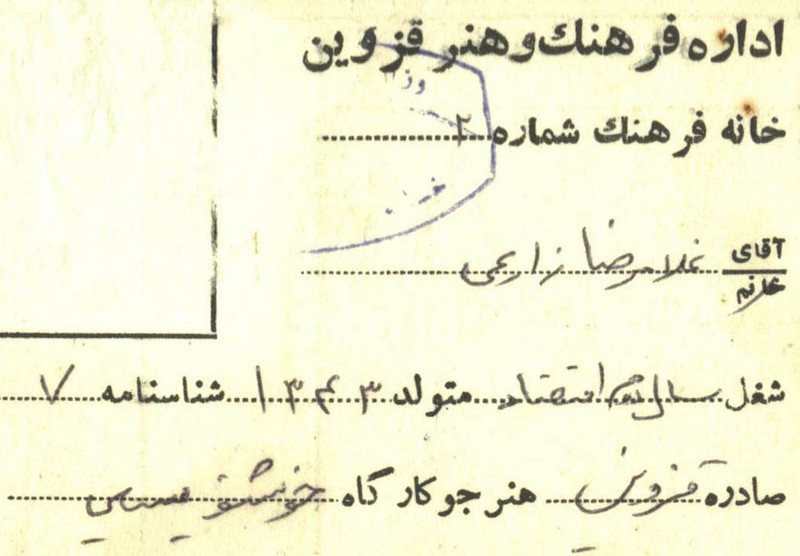 اداره فرهنك و هنر قزوین
خانه فرهنك شماره ۲
آقای
خانم
غلامرضا زارعی
شغل سال دهم اقتصاد متولد ۱۳۴۳ شناسنامه ۷
صادره قزوین هنرجو کارگاه خوشنویسی